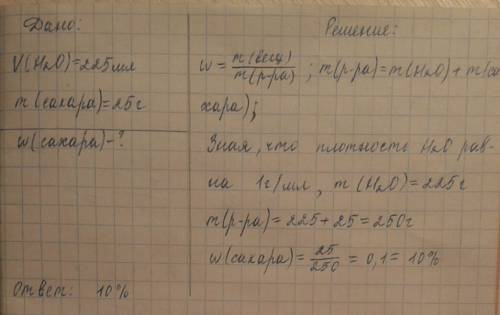 Дано:
V(H₂O)=225мл
m(сахара)=25г
w(сахара)-?
Решение:
w=m(вещ)/m(р-ра); m(р-ра)=m(H₂O)+m(са
хара);
Зная, что плотность H₂O рав-
на 1г/мл, m(H₂O)=225г
m(р-ра)=225+25=250г
w(сахара)=25/250=0,1=10%
Ответ: 10%